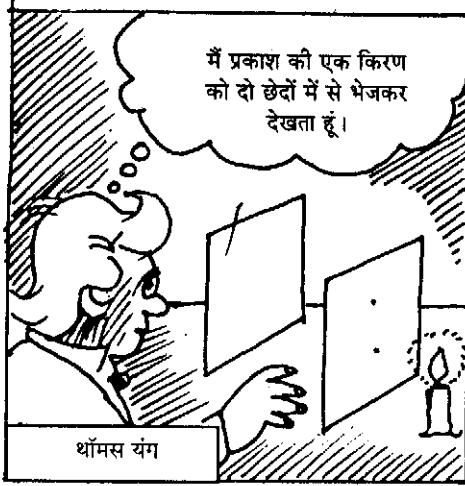 मैं प्रकाश की एक किरण
को दो छेदों में से भेजकर
देखता हूं।
थॉमस यंग